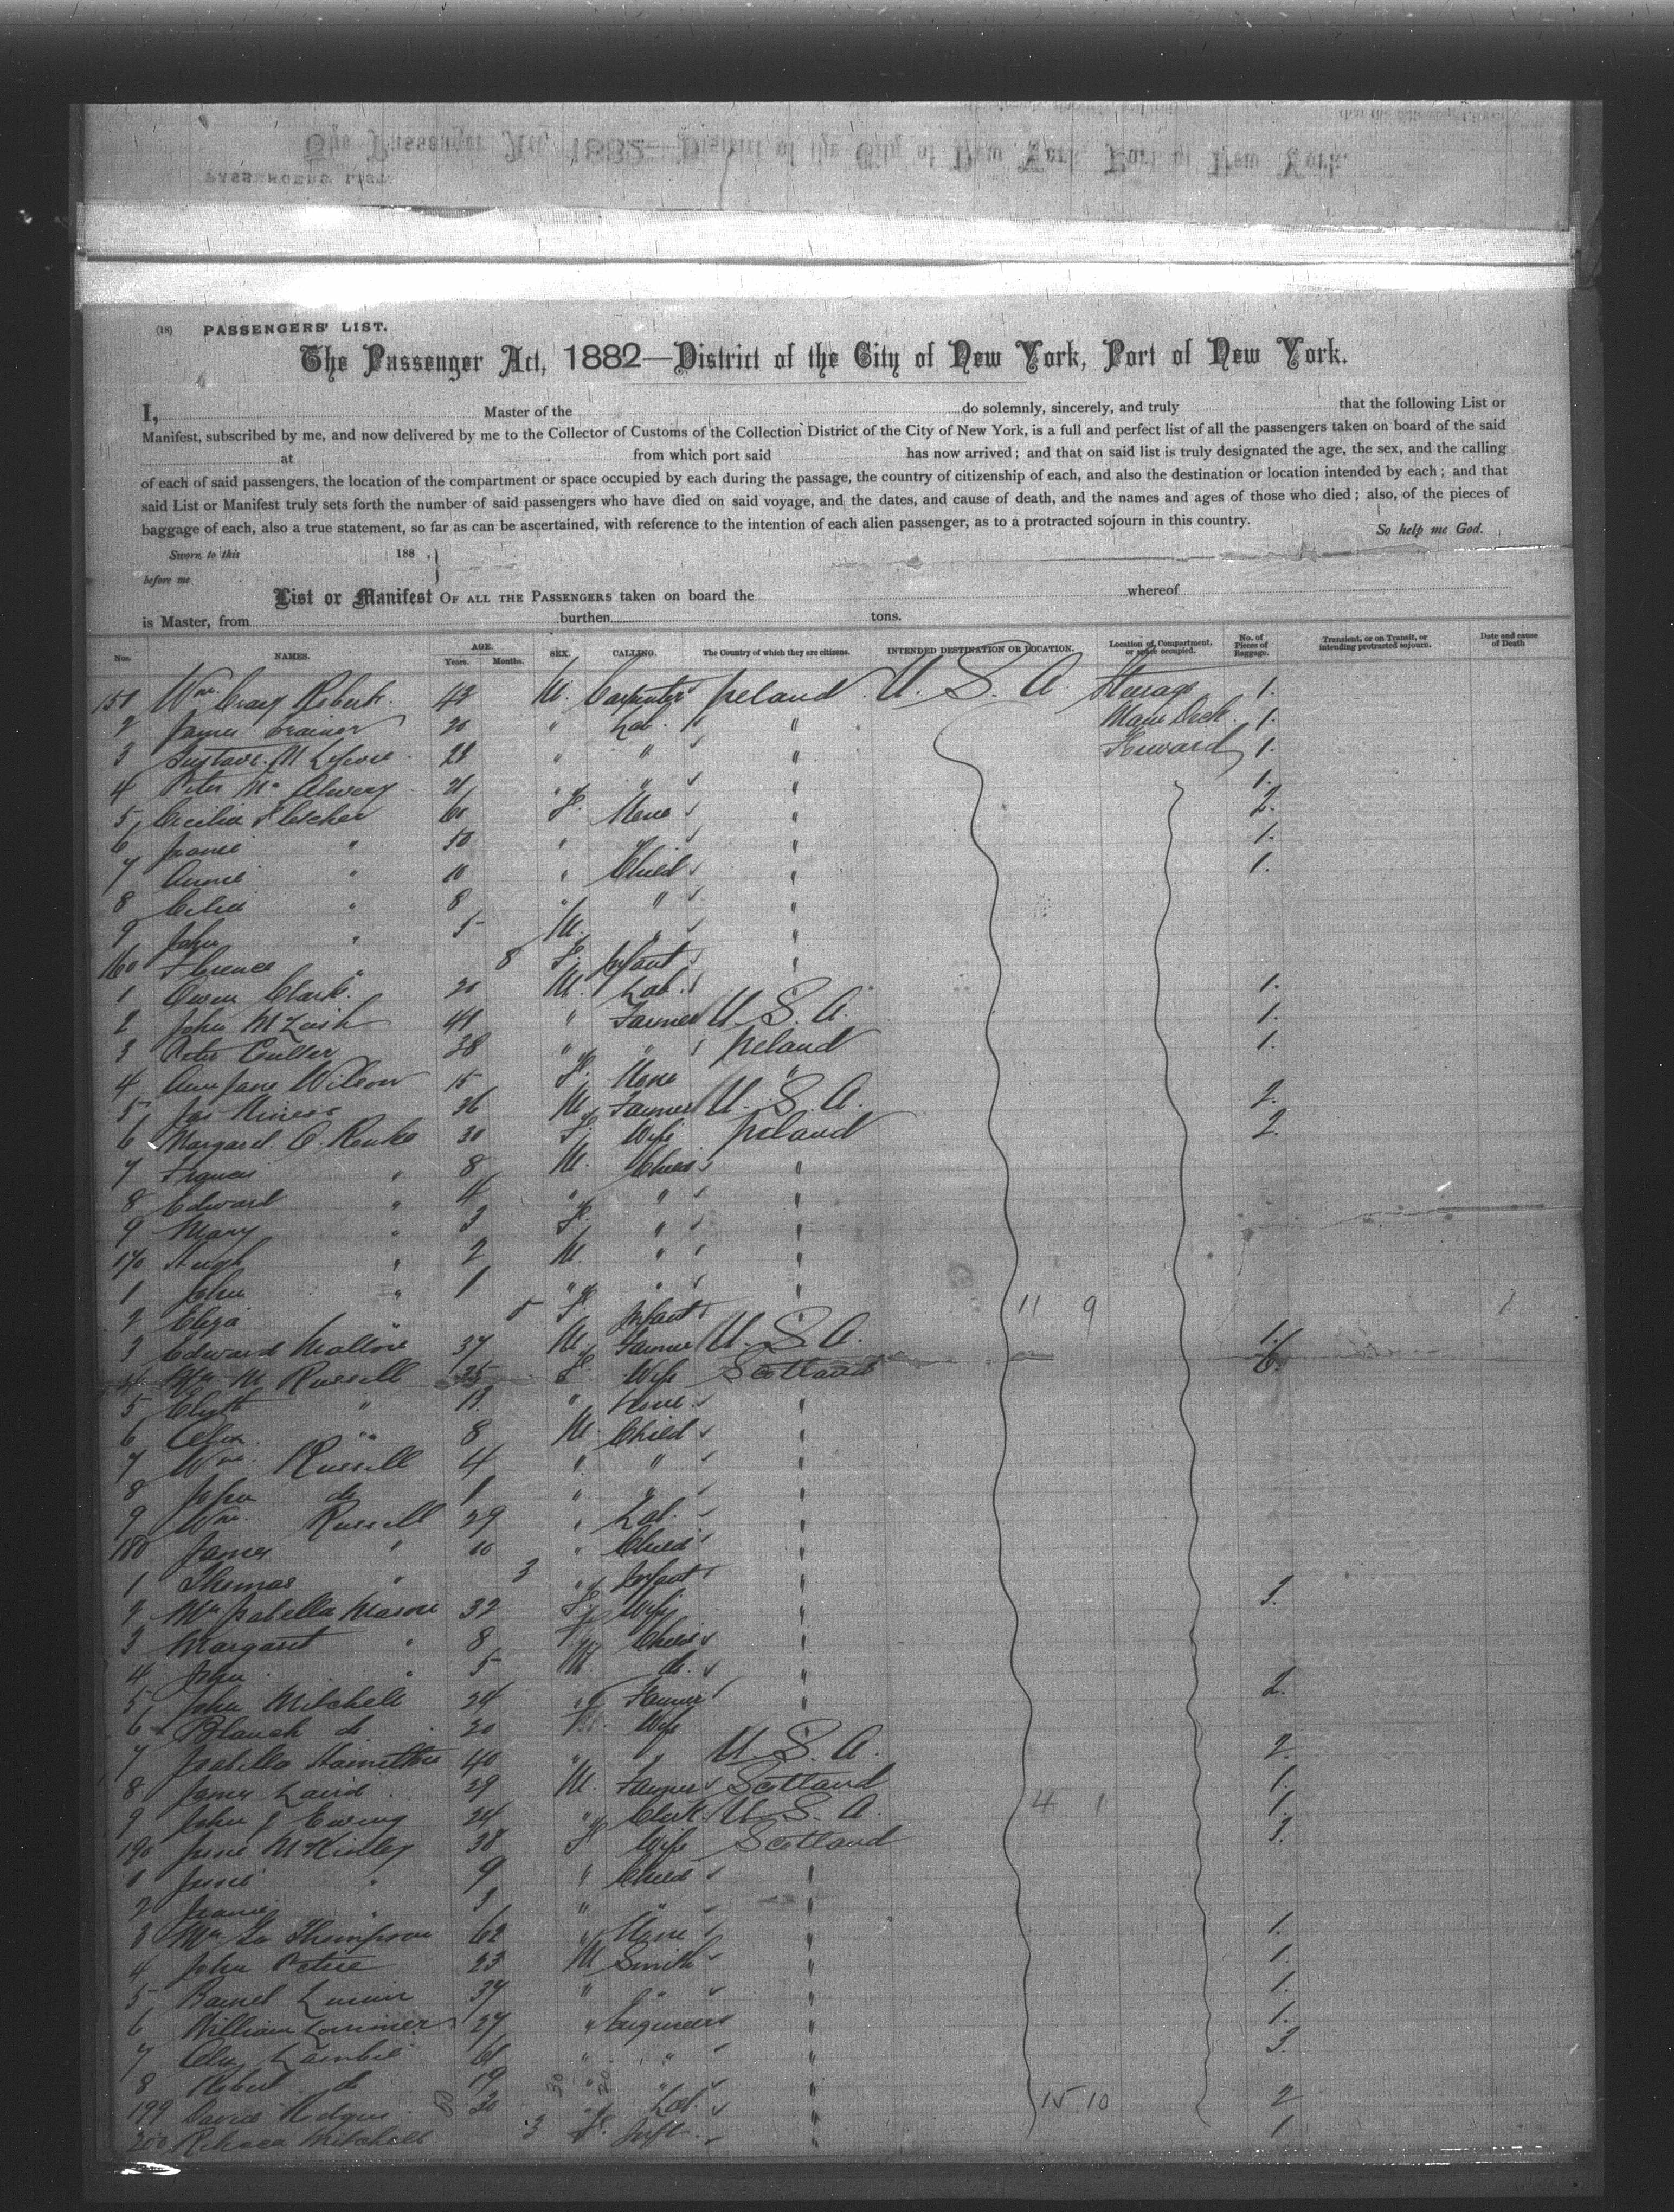 (18) PASSENGERS' LIST.
The Passenger Act, 1882—District of the City of New York, Port of New York.
I, Master of the do solemnly, sincerely, and truly that the following List or
Manifest, subscribed by me, and now delivered by me to the Collector of Customs of the Collection District of the City of New York, is a full and perfect list of all the passengers taken on board of the said
at from which port said has now arrived; and that on said list is truly designated the age, the sex, and the calling
of each of said passengers, the location of the compartment or space occupied by each during the passage, the country of citizenship of each, and also the destination or location intended by each; and that
said List or Manifest truly sets forth the number of said passengers who have died on said voyage, and the dates, and cause of death, and the names and ages of those who died; also, of the pieces of
baggage of each, also a true statement, so far as can be ascertained, with reference to the intention of each alien passenger, as to a protracted sojourn in this country. So help me God.
Sworn to this 188 .
before me
List or Manifest OF ALL THE PASSENGERS taken on board the whereof
is Master, from burthen tons.
Nos. NAMES. AGE. Years. Months. SEX. CALLING. The Country of which they are citizens. INTENDED DESTINATION OR LOCATION. Location of Compartment, or space occupied. No. of Pieces of Baggage. Transient, or on Transit, or intending protracted sojourn. Date and cause of Death
151 Wm. Craig 43 M. Carpenter Ireland U. S. A. Steerage 1.
2 James Trainer 20 " Lab. " Main Deck 1.
3 22 " " " Forward 1.
4 Peter Mc 21 " " " 1.
5 Cecilia Fletcher 60 F. None " 2.
6 " 50 " " " 1.
7 Annie " 10 " Child " 1.
8 Celia " 8 " " "
9 John " 5 M. " "
160 Florence " 8 F. Infant "
1 Owen Clark 20 M. Lab. 1.
2 John 41 " Farmer U. S. A. 1.
3 Peter Coulter 38 " " Ireland 1.
4 Ann Jane Wilson 15 F. None "
5 Jas 36 M. Farmer U. S. A. 2.
6 Margaret O. 30 F. Wife Ireland 2.
7 Francis " 8 M. Child "
8 Edward " 4 " " "
9 Mary " 3 F. " "
170 Hugh " 2 M. " "
1 John " 1 " " "
2 Eliza " F. Infant " 11 9
3 Edward Mallone 37 M. Farmer U. S. A. 1.
4 Russell 35 F. Wife Scotland 6.
5 " 11 " None "
6 Alex " 8 M. Child "
7 Wm. Russell 4 " " "
8 John do 1 " " "
9 Wm. Russell 29 " Lab. "
180 James " 10 " Child "
1 Thomas " 3 " Infant "
2 Isabella Mason 32 F. Wife " 3.
3 Margaret " 8 Child "
4 John " 5 M. do. "
5 John Mitchell 24 " Farmer " 2.
6 Blanch do 20 Wife
7 Isabella Hamilton 40 " " U. S. A. 2.
8 James Laird 29 M. Farmer Scotland 1.
9 John J Ewing 24 " Clerk U. S. A. 4 1 1.
190 McKinley 38 F. Wife Scotland 3.
1 " 9 " Child "
2 " 3 " " "
3 Thompson 62 " None " 1.
4 John Petrie 23 M Smith " 1.
5 37 " " " 1.
6 William Lorimer 27 " Engineer " 1.
7 Alex " " " 3.
8 Robert do 19 " " "
199 David 30 " Lab. " 15 10 2
200 Rebecca Mitchell 3 F. Inft. " 1